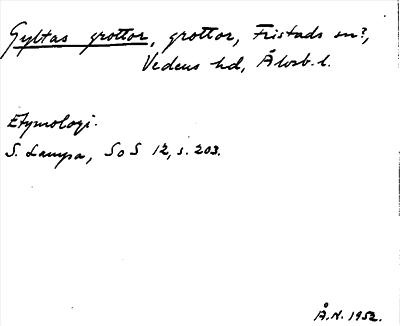 Gyltas grottor, grottor, Fristads sn?,
Vedens hd, Älvsb. l.
Etymologi.
S. Lampa, SoS 12, s. 203.
Å.H. 1952.